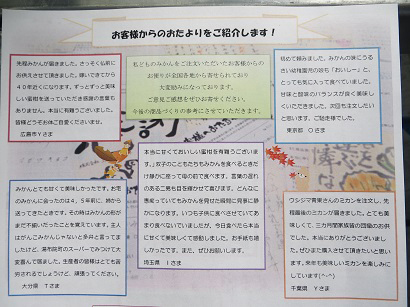 お客様からのおたよりをご紹介します！
先程みかんが届きました。さっそく仏前に
お供えさせて頂きました。嫁いできてから
４０年近くになります。ずっとずっと美味
しい蜜柑を送っていただき感謝の言葉も
ありません。本当に有難うございました。
皆様どうぞお体ご自愛くださいませ。
広島市Ｙさま
私どものみかんをご注文いただいたお客様からの
お便りが全国各地から寄せられており
大変励みになっております。
ご意見ご感想をぜひお寄せください。
今後の商品づくりの参考にさせていただきます。
初めて頼みました。みかんの味にうる
さい幼稚園児の娘も「おいしーっ」と、
とっても気に入って食べていました。
甘味と酸味のバランスが良く美味し
いただきました。次回も注文したい
と思います。ご馳走様でした。
東京都　Ｏさま
みかんとても甘くて美味しかったです。お宅
のみかんに出会ったのは４，５年前に、姉から
送ってきたときです。その時はみかんの形が
まだ不揃いだったことを覚えています。主人
はがんこみかんじゃないと条件と言ってま
したけど、湯布院町のスーパーでみつけて大
変喜んで居ました。生産者の皆様はとても苦
労されるでしょうけど、頑張ってください。
大分県　Ｔさま
本当に甘くておいしい蜜柑を有難うございま
す。双子のこどもたちもみかんを食べるときだ
け静かに座って母の前で食べます。言葉の遅れ
のある二男も目を輝かせて喜びます。どんなに
愚図っていてもみかんを見せた瞬間に見事に静
かになります。いつも子供に食べさせていてあ
まり食べないでいましたが、今日食べたら本当
に甘くて美味しくて感動しました。お手紙も嬉
しかったです。また、ぜひお願いします。
埼玉県　Ｉさま
ウシジマ青果さんのミカンを注文し、先
程最後のミカンが届きました。とても美
味しくて、三カ月間家族皆の話題のお供
でした。本当にありがとうございまし
た。ぜひまた購入させて頂きたいと思い
ます。来年も美味しいミカンを楽しみに
しています(^-^)
千葉県　Ｙさま